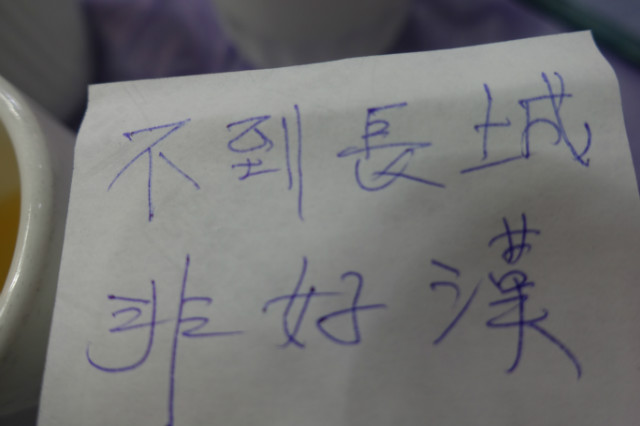 不到長城
非好漢